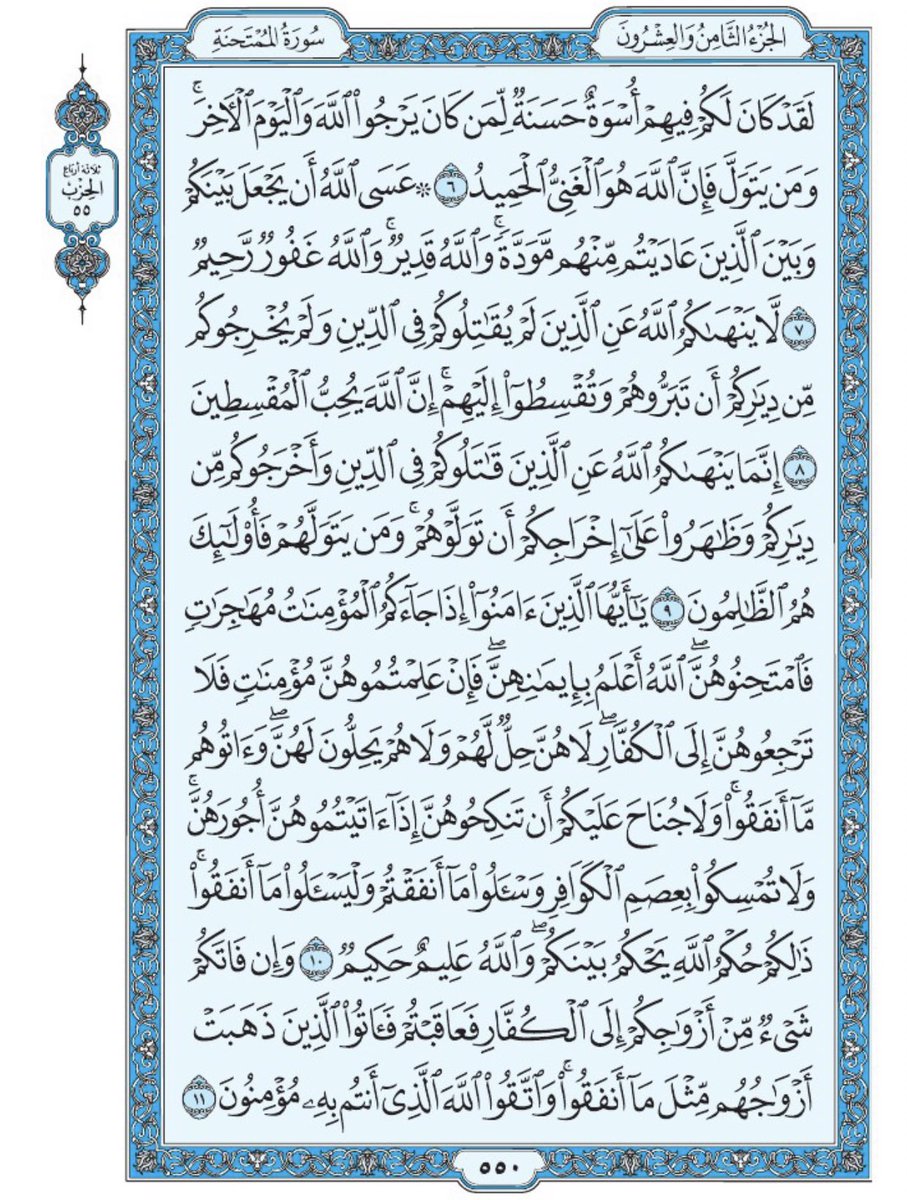 الجزء الثامن والعشرون
سورة الممتحنة
لَقَدْ كَانَ لَكُمْ فِيهِمْ أُسْوَةٌ حَسَنَةٌ لِّمَن كَانَ يَرْجُوا۟ ٱللَّهَ وَٱلْيَوْمَ ٱلْـَٔاخِرَ ۚ
وَمَن يَتَوَلَّ فَإِنَّ ٱللَّهَ هُوَ ٱلْغَنِىُّ ٱلْحَمِيدُ ٦ ۞ عَسَى ٱللَّهُ أَن يَجْعَلَ بَيْنَكُمْ
وَبَيْنَ ٱلَّذِينَ عَادَيْتُم مِّنْهُم مَّوَدَّةً ۚ وَٱللَّهُ قَدِيرٌ ۚ وَٱللَّهُ غَفُورٌ رَّحِيمٌ
٧ لَّا يَنْهَىٰكُمُ ٱللَّهُ عَنِ ٱلَّذِينَ لَمْ يُقَـٰتِلُوكُمْ فِى ٱلدِّينِ وَلَمْ يُخْرِجُوكُم
مِّن دِيَـٰرِكُمْ أَن تَبَرُّوهُمْ وَتُقْسِطُوٓا۟ إِلَيْهِمْ ۚ إِنَّ ٱللَّهَ يُحِبُّ ٱلْمُقْسِطِينَ
٨ إِنَّمَا يَنْهَىٰكُمُ ٱللَّهُ عَنِ ٱلَّذِينَ قَـٰتَلُوكُمْ فِى ٱلدِّينِ وَأَخْرَجُوكُم مِّن
دِيَـٰرِكُمْ وَظَـٰهَرُوا۟ عَلَىٰٓ إِخْرَاجِكُمْ أَن تَوَلَّوْهُمْ ۚ وَمَن يَتَوَلَّهُمْ فَأُو۟لَـٰٓئِكَ
هُمُ ٱلظَّـٰلِمُونَ ٩ يَـٰٓأَيُّهَا ٱلَّذِينَ ءَامَنُوٓا۟ إِذَا جَآءَكُمُ ٱلْمُؤْمِنَـٰتُ مُهَـٰجِرَٰتٍ
فَٱمْتَحِنُوهُنَّ ۖ ٱللَّهُ أَعْلَمُ بِإِيمَـٰنِهِنَّ ۖ فَإِنْ عَلِمْتُمُوهُنَّ مُؤْمِنَـٰتٍ فَلَا
تَرْجِعُوهُنَّ إِلَى ٱلْكُفَّارِ ۖ لَا هُنَّ حِلٌّ لَّهُمْ وَلَا هُمْ يَحِلُّونَ لَهُنَّ ۖ وَءَاتُوهُم
مَّآ أَنفَقُوا۟ ۚ وَلَا جُنَاحَ عَلَيْكُمْ أَن تَنكِحُوهُنَّ إِذَآ ءَاتَيْتُمُوهُنَّ أُجُورَهُنَّ ۚ
وَلَا تُمْسِكُوا۟ بِعِصَمِ ٱلْكَوَافِرِ وَسْـَٔلُوا۟ مَآ أَنفَقْتُمْ وَلْيَسْـَٔلُوا۟ مَآ أَنفَقُوا۟ ۚ
ذَٰلِكُمْ حُكْمُ ٱللَّهِ يَحْكُمُ بَيْنَكُمْ ۖ وَٱللَّهُ عَلِيمٌ حَكِيمٌ ١٠ وَإِن فَاتَكُمْ
شَىْءٌ مِّنْ أَزْوَٰجِكُمْ إِلَى ٱلْكُفَّارِ فَعَاقَبْتُمْ فَـَٔاتُوا۟ ٱلَّذِينَ ذَهَبَتْ
أَزْوَٰجُهُم مِّثْلَ مَآ أَنفَقُوا۟ ۚ وَٱتَّقُوا۟ ٱللَّهَ ٱلَّذِىٓ أَنتُم بِهِۦ مُؤْمِنُونَ ١١
ثلاثة أرباع
الحزب
٥٥
٥٥٠